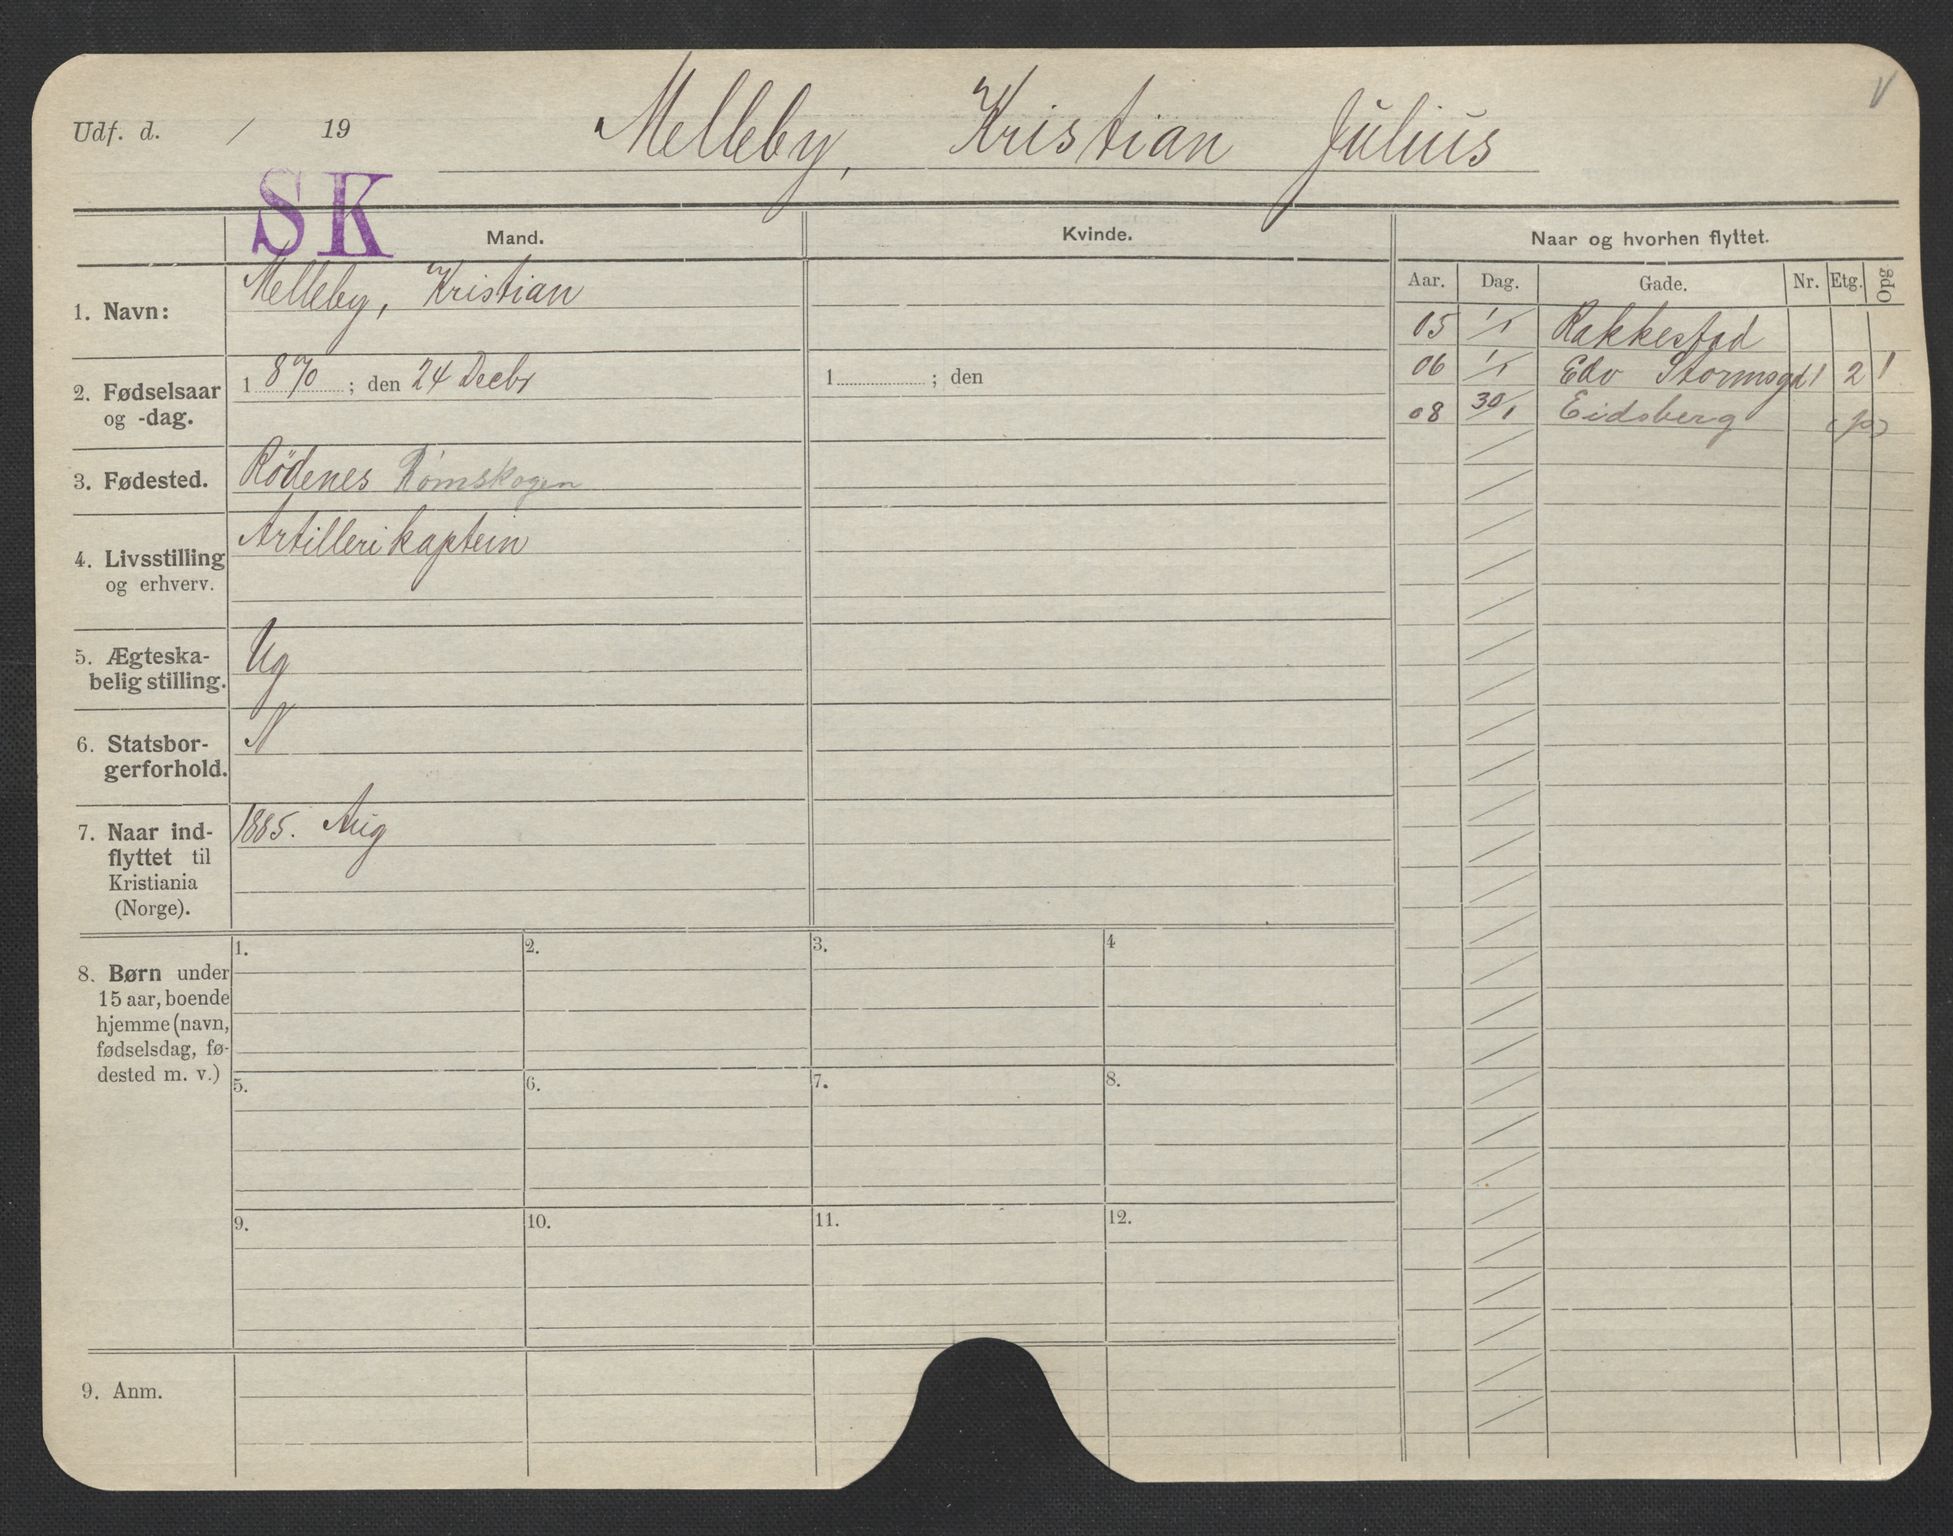 Udf. d. / 19
Melleby, Kristian Julius
V
SK
Mand.
Kvinde.
Naar og hvorhen flyttet.
Aar. Dag. Gade. Nr. Etg. Opg
1. Navn:
Melleby, Kristian
05 1/1 Rakkestad
06 1/1 Edv Stormsgd 1 2 1
08 30/1 Eidsberg
2. Fødselsaar
og -dag.
1 870 ; den 24 Decbr
1 ; den
3. Fødested.
Rödenes Rømskogen
4. Livsstilling
og erhverv.
Artillerikaptein
5. Ægteska-
belig stilling.
Ug
6. Statsbor-
gerforhold.
N
7. Naar ind-
flyttet til
Kristiania
(Norge).
1885. Aug
8. Børn under
15 aar, boende
hjemme (navn,
fødselsdag, fø-
dested m. v.)
1. 2. 3. 4
5. 6. 7. 8.
9. 10. 11. 12.
9. Anm.